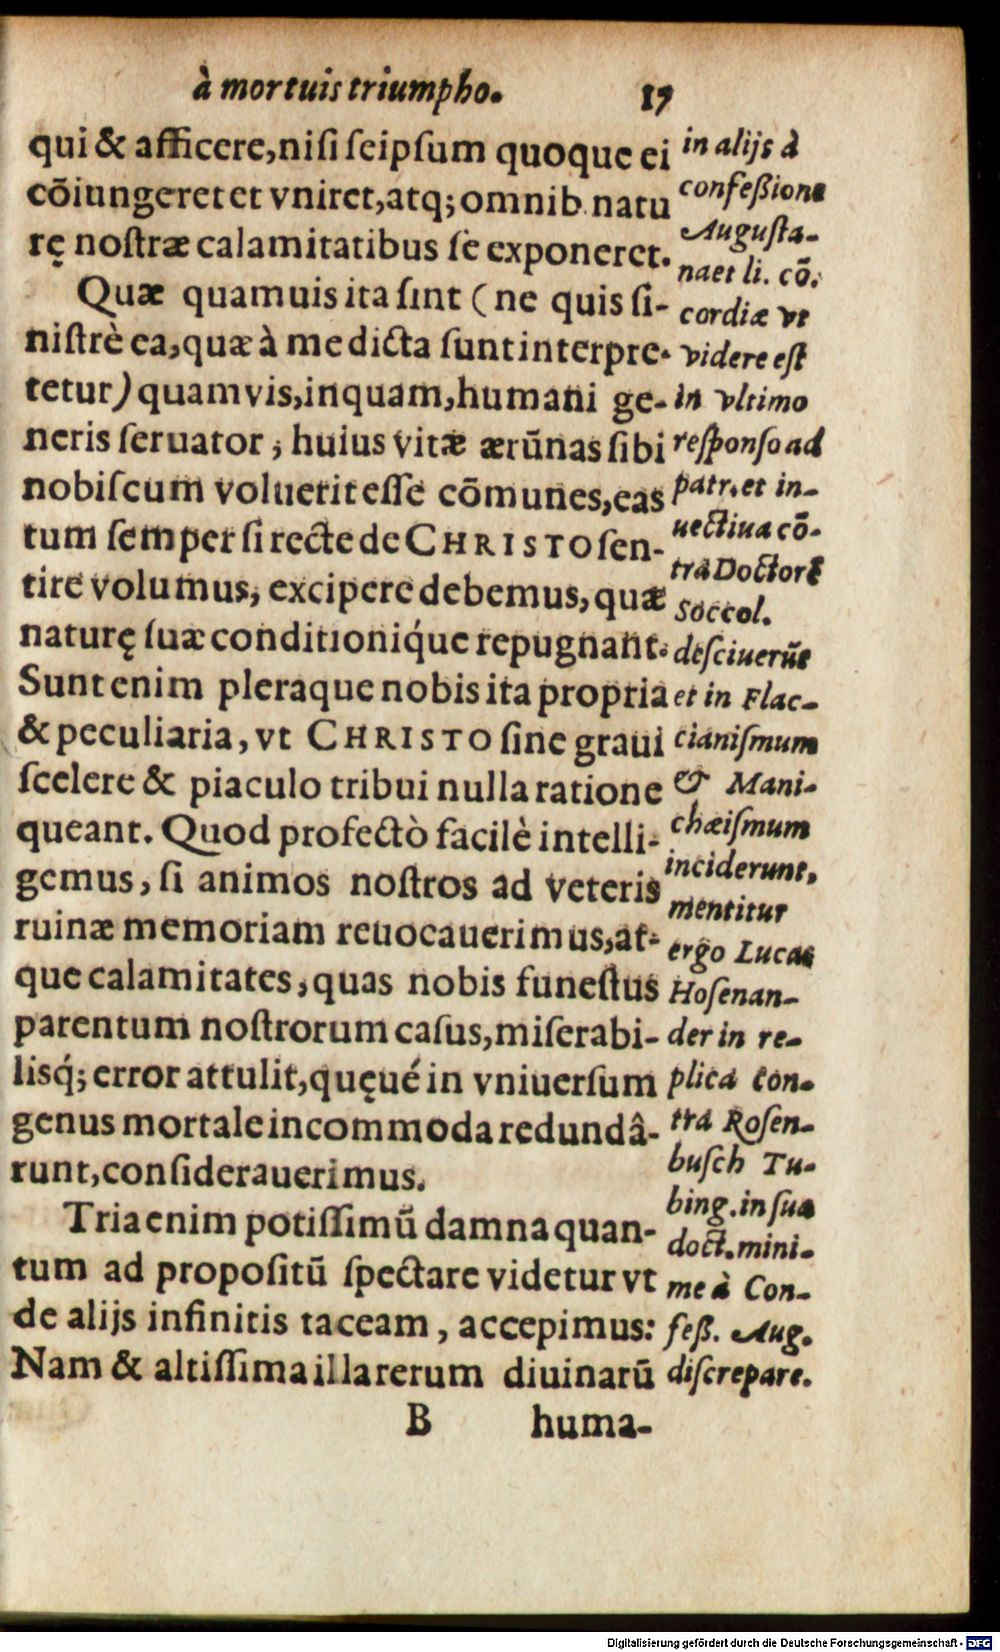 à mortuis triumpho. 17
qui & afficere, nisi seipsum quoque ei
cōiungeret et vniret, atq; omnib. natu
rę nostræ calamitatibus se exponeret.
Quæ quamuis ita sint (ne quis si-
nistrè ea, quæ à me dicta sunt interpre-
tetur) quamvis, inquam, humani ge-
neris seruator, huius vitæ ærūnas sibi
nobiscum voluerit esse cōmunes, eas
tum semper si recte de CHRISTO sen-
tire volumus, excipere debemus, quæ
naturę suæ conditioniq́ue repugnant.
Sunt enim pleraque nobis ita propria
& peculiaria, vt CHRISTO sine graui
scelere & piaculo tribui nulla ratione
queant. Quod profectò facilè intelli-
gemus, si animos nostros ad veteris
ruinæ memoriam reuocauerimus, at-
que calamitates, quas nobis funestus
parentum nostrorum casus, miserabi-
lisq́; error attulit, quęué in vniuersum
genus mortale incommoda redundâ-
runt, considerauerimus.
Tria enim potissimū damna quan-
tum ad propositū spectare videtur vt
de alijs infinitis taceam, accepimus:
Nam & altissima illa rerum diuinarū
B huma-
in alijs à
confeßione
Augusta-
na et li. cō.
cordiæ vt
videre est
in vltimo
responso ad
patr. et in-
uectiua cō-
tra Doctorē
Soccol.
desciuerūt
et in Flac-
cianismum
& Mani-
chæismum
inciderunt,
mentitur
ergo Lucas
Hosenan-
der in re-
plica con-
tra Rosen-
busch Tu-
bing. in sua
doct. mini-
me à Con-
feß. Aug.
discrepare.
Digitalisierung gefördert durch die Deutsche Forschungsgemeinschaft - DFG